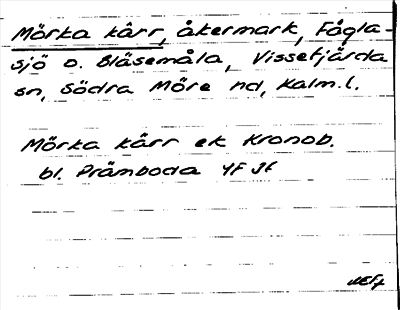 Mörka kärr, åkermark, Fågla-
sjö o. Bläsemåla, Vissefjärda
sn, Södra Möre hd, Kalm.l.
Mörka kärr ek Kronob.
bl. Prämboda YF Jf